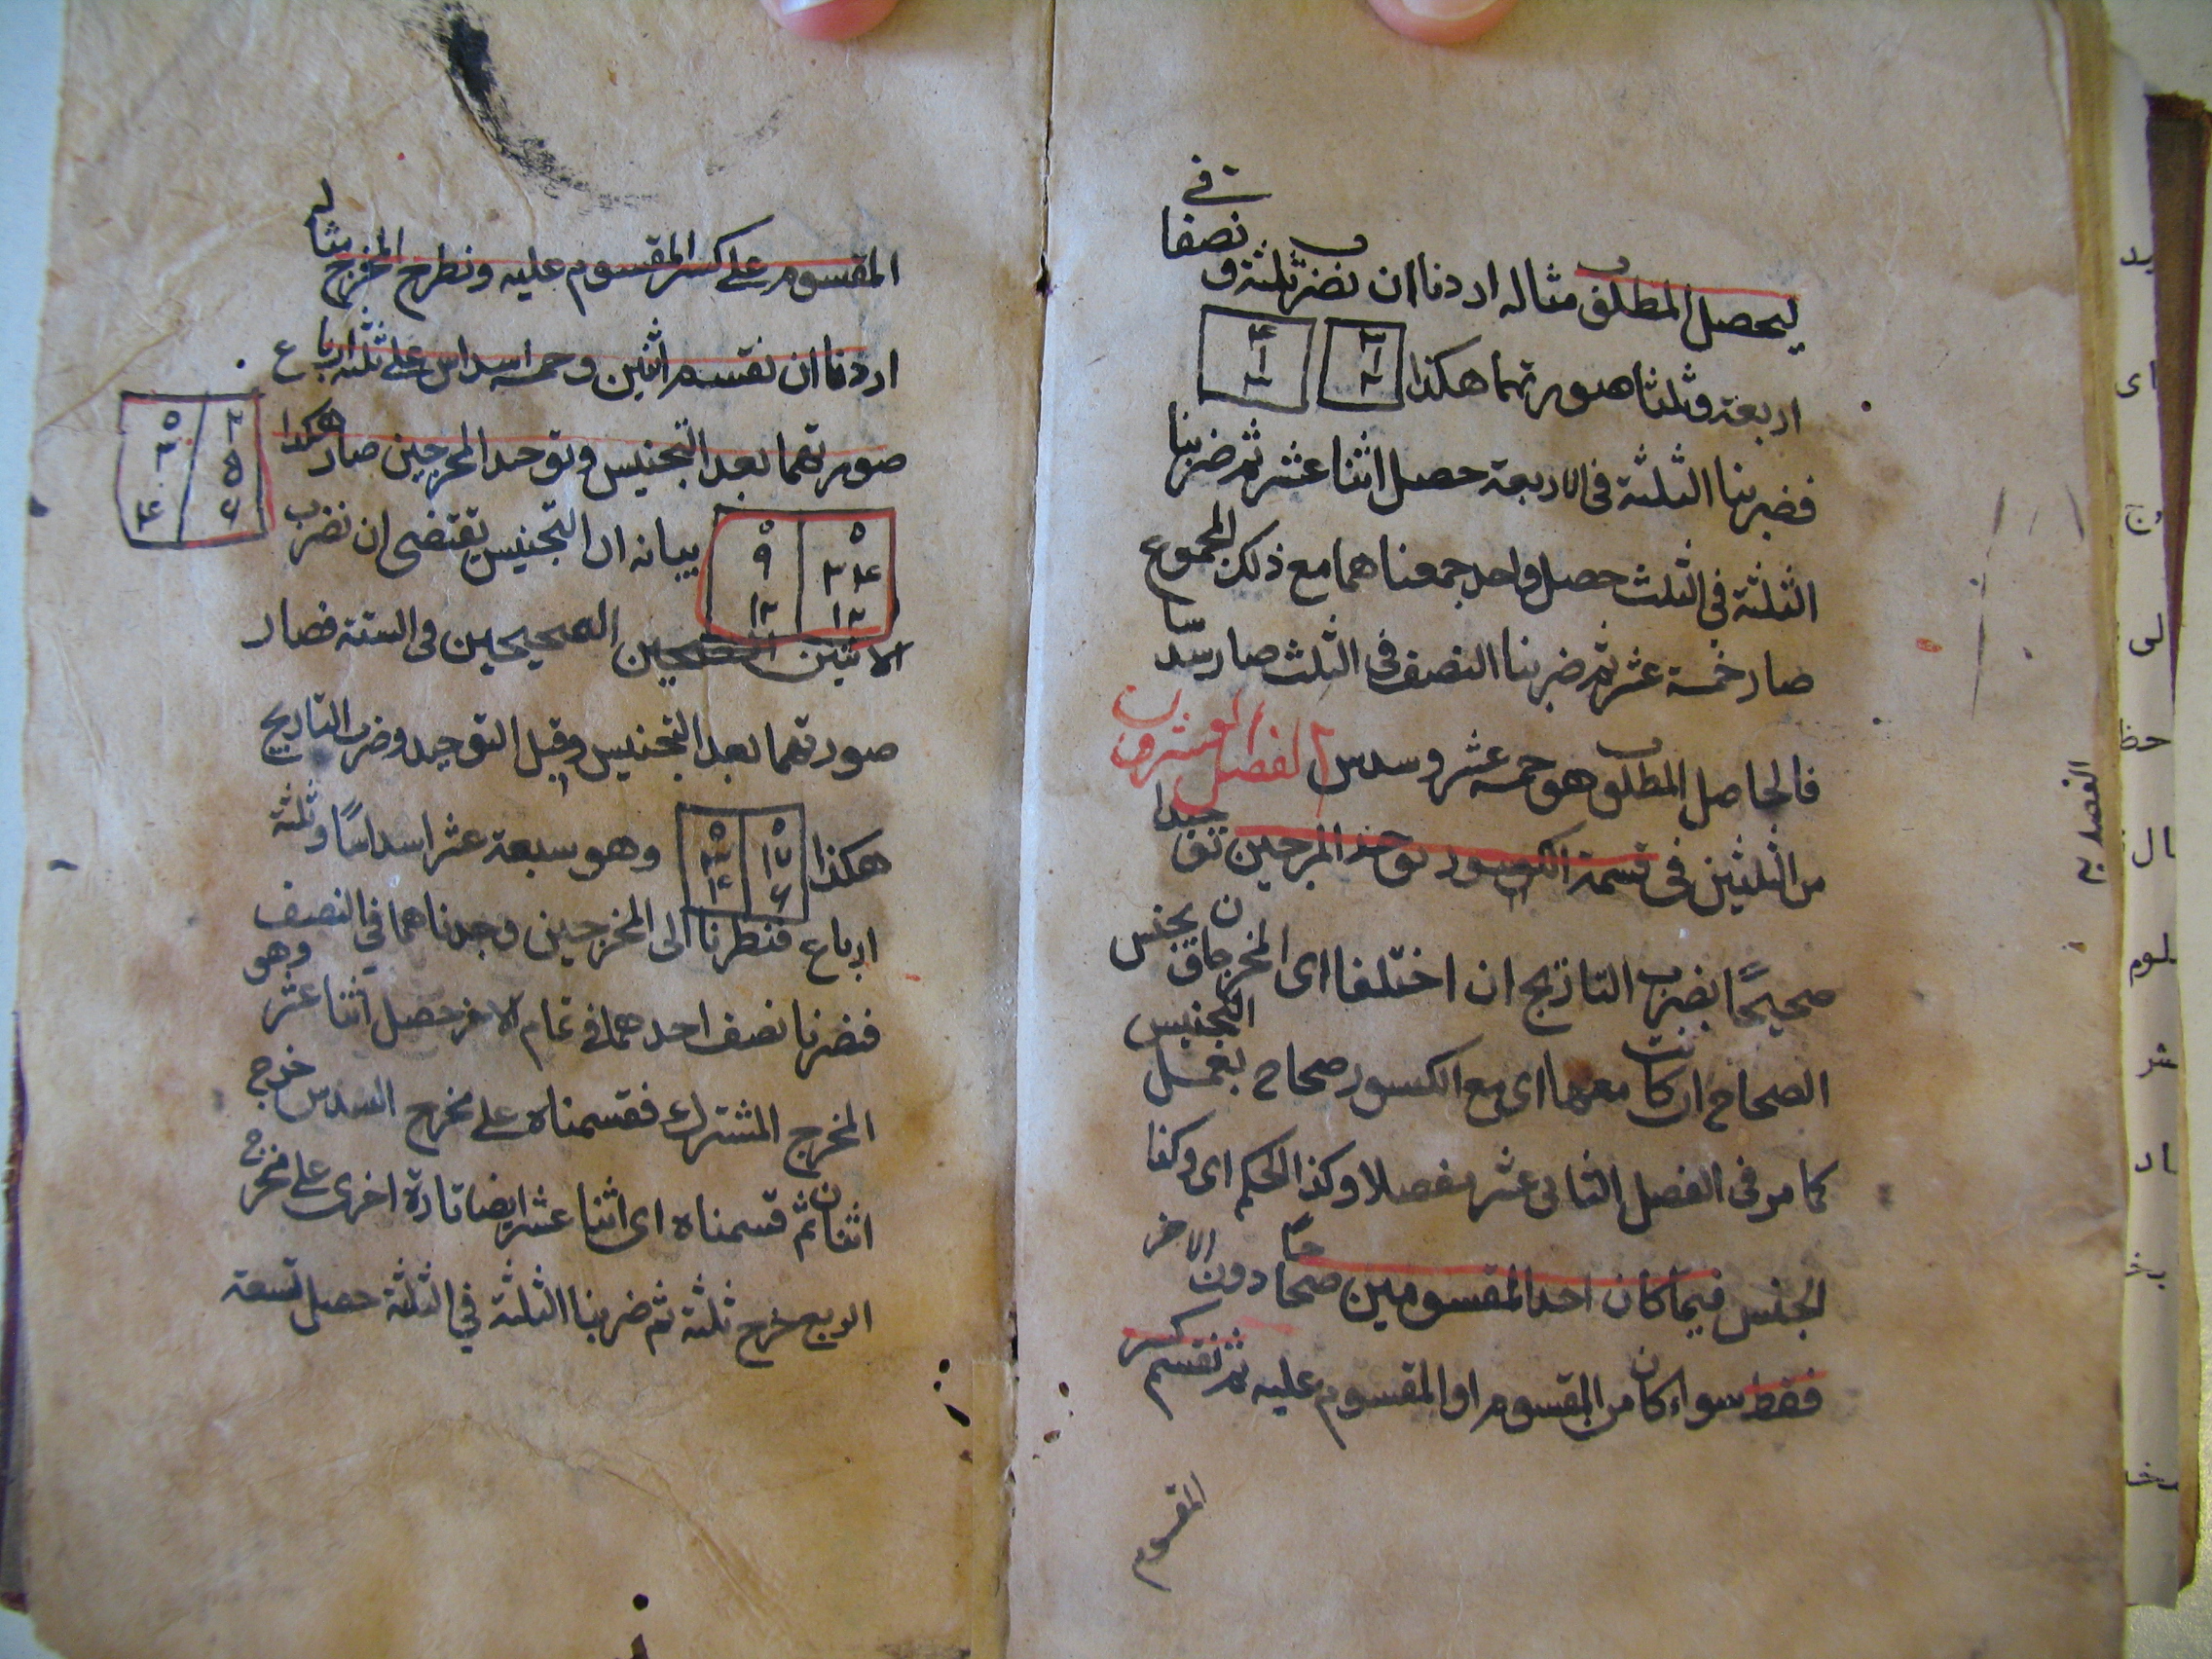 ليحصل المطلوب مثاله اردنا ان نضرب ثلثة و نصفا في
اربعة وثلثا صورتهما هكذا
٣
١
٢
٤
١
٣
فضربنا الثلثة في الاربعة حصل اثنا عشر ثم ضربنا
الثلثة في الثلث حصل واحد جمعناهما مع ذلك المجموع
صار خمسة عشر ثم ضربنا النصف في الثلث صار سدسا
فالحاصل المطلوب هو خمسة عشر وسدس الفصل العشرون
من الثلثين في قسمة الكسور توحد المخرجين توحيدا
صحيحًا بضرب التاريج ان اختلفا اى المخرجان ويجنس
الصحاح ان كانت معهما اى مع الكسور صحاح بعمل التجنيس
كما مر في الفصل الثاني عشر مفصلا وكذا الحكم اى وكذا
الجنس فيما كان احد المقسومين صحاحًا دون الاخر
فقط سواء كان من المقسوم او المقسوم عليه ثم نقسم كسر
المقسوم
المقسوم على كسر المقسوم عليه ونطرح المخرج مثاله
اردنا ان نقسم اثنين وخمسة اسداس على ثلثة ارباع
صورتهما بعد التجنيس وتوحد المخرجين صار هكذا
٢
٥
٦
٥
٣
٤
٥
٣٤
١٢
٥
٩
١٢
بيانه ان التجنيس يقتضى ان نضرب
الاثنين الصحيحين في الستة فصار
صورتهما بعد التجنيس وقبل التوحيد وضرب التاريج
هكذا
٥
١٧
٦
٥
٣
٤
وهو سبعة عشر اسداسًا وثلثة
ارباع فنظرنا الى المخرجين وجدناهما في النصف
فضربنا نصف احدهما في تمام الاخر حصل اثنا عشر وهو
المخرج المشترك فقسمناه على مخرج السدس خرج
اثنان ثم قسمناه اى اثنا عشر ايضا تارة اخرى على مخرج
الربع خرج ثلثة ثم ضربنا الثلثة في الثلثة حصل تسعة